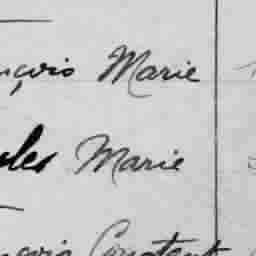 nçois Marie
les Marie
nçois Constant